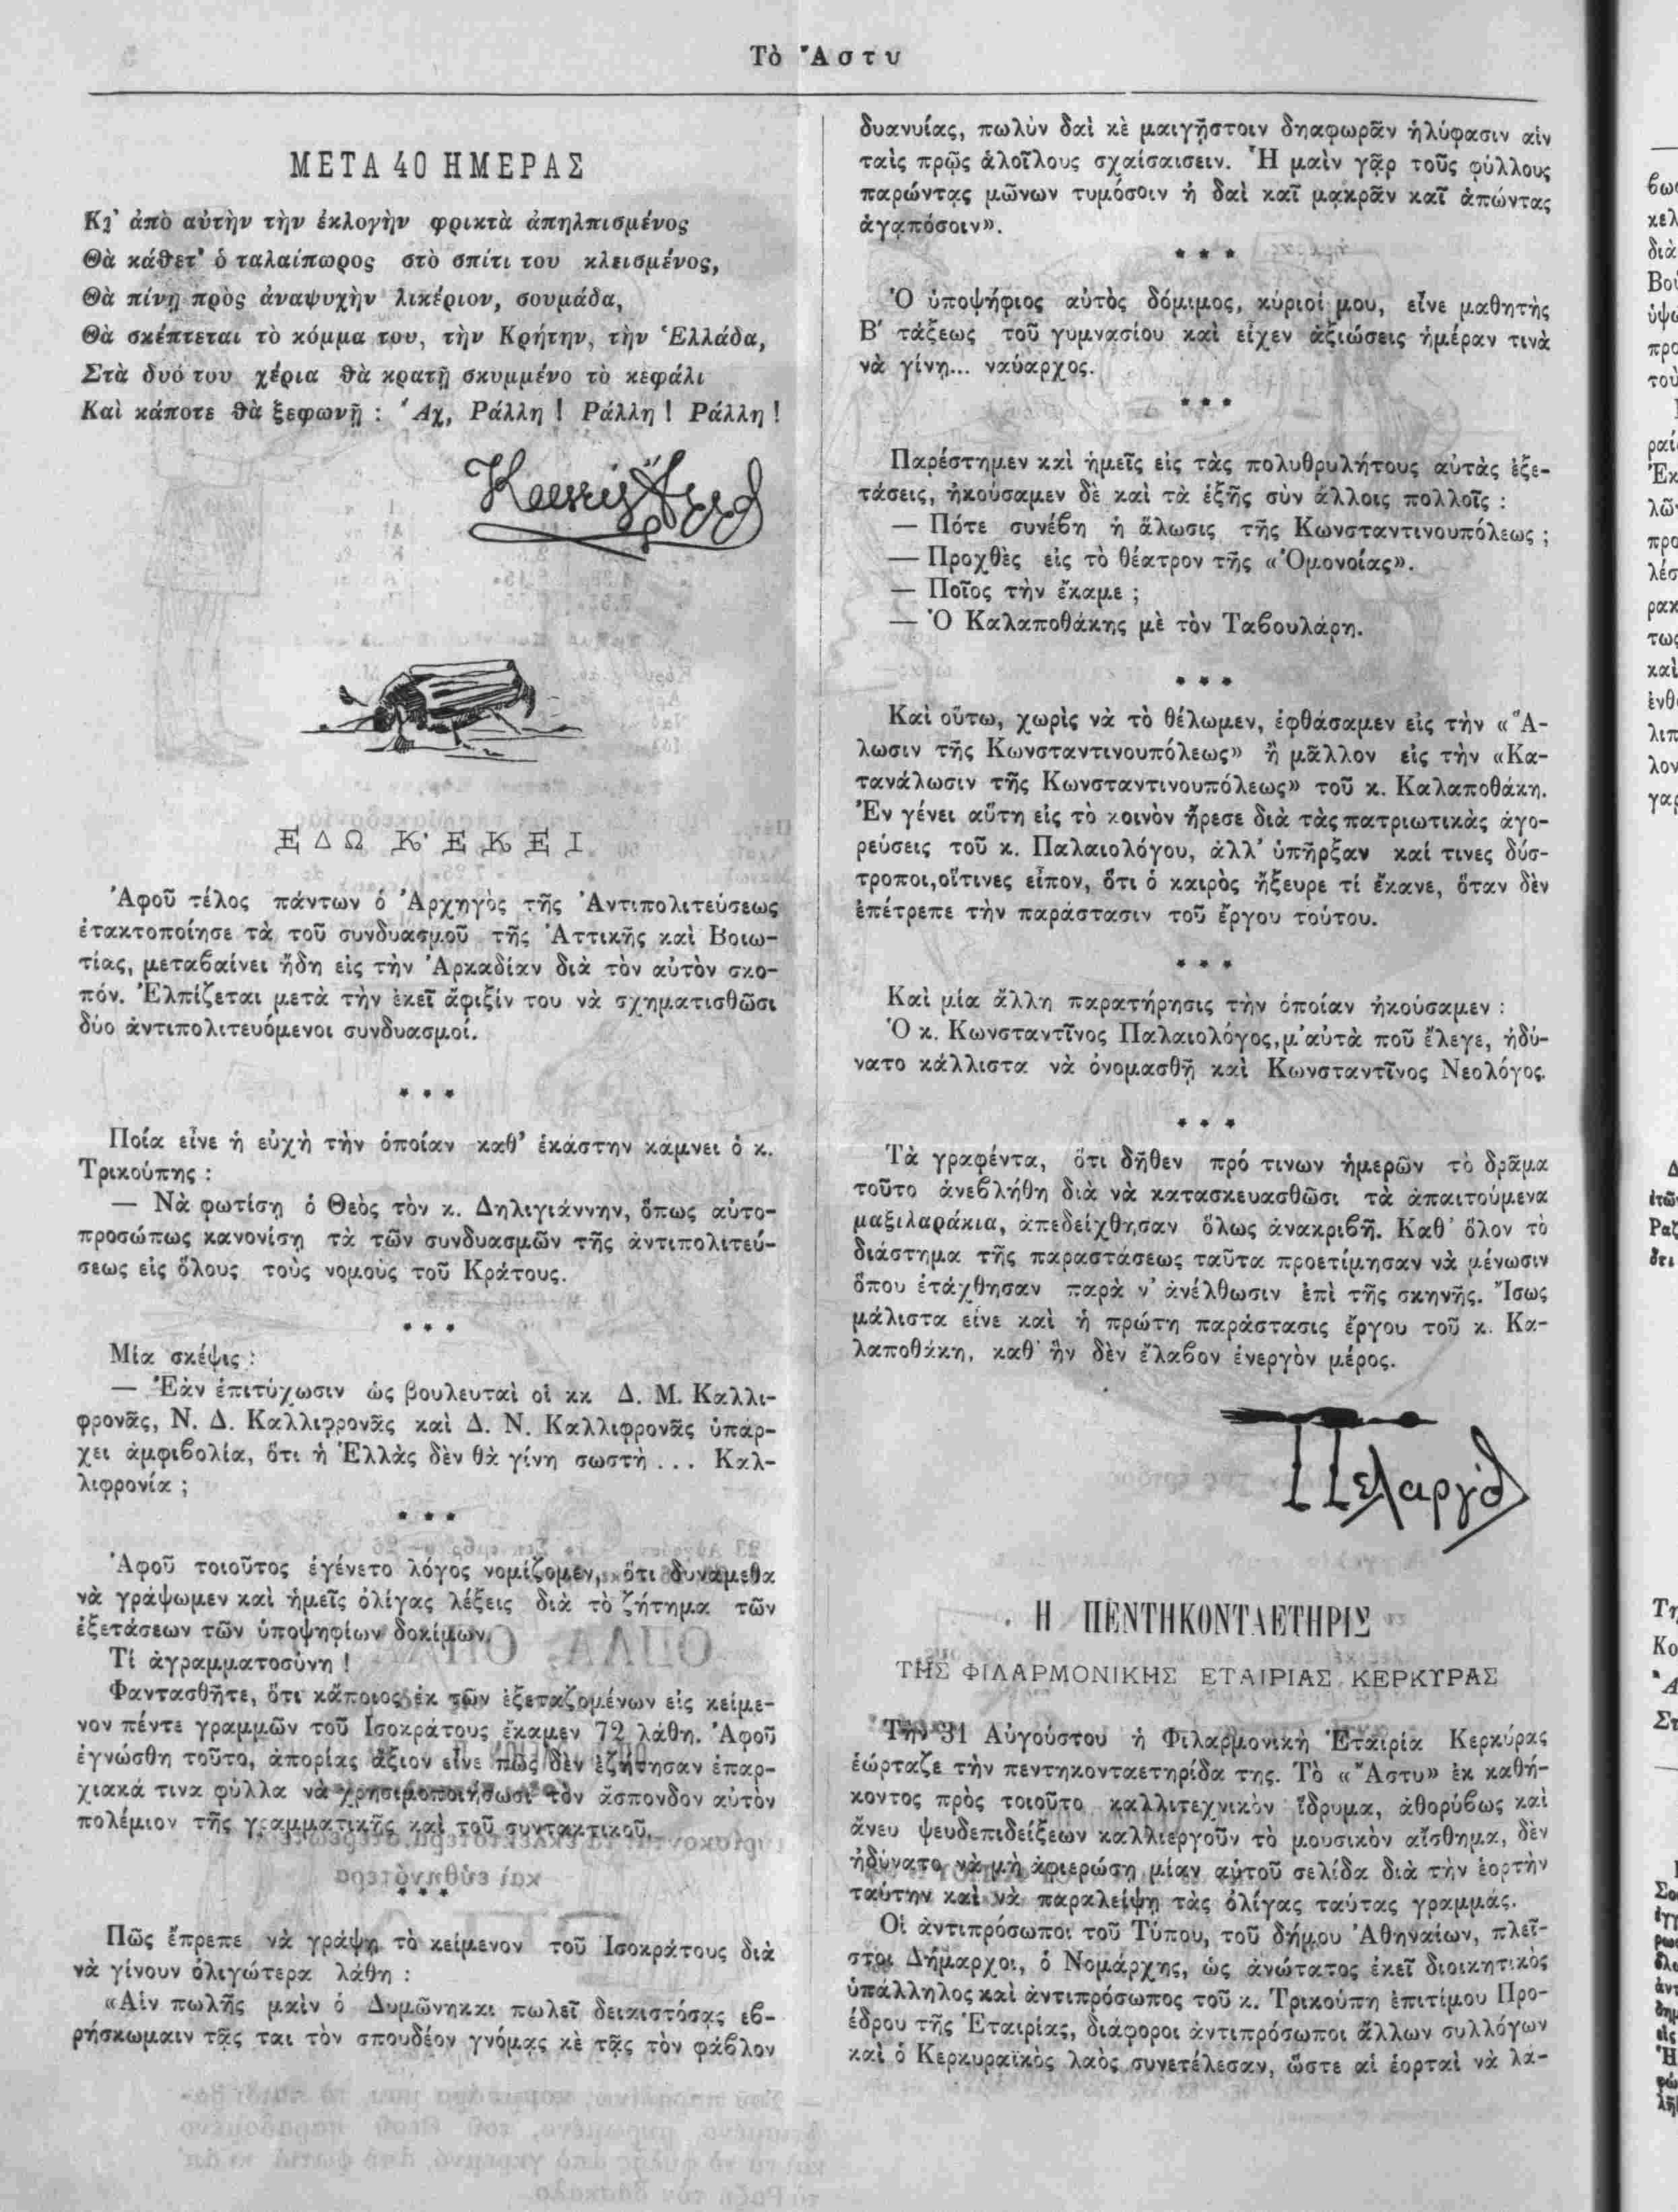 Τὸ Ἄστυ
ΜΕΤΑ 40 ΗΜΕΡΑΣ
Κι' ἀπὸ αὐτὴν τὴν ἐκλογὴν φρικτὰ ἀπηλπισμένος
Θὰ κάθετ' ὁ ταλαίπωρος στὸ σπίτι του κλεισμένος,
Θὰ πίνῃ πρὸς ἀναψυχὴν λικέριον, σουμάδα,
Θὰ σκέπτεται τὸ κόμμα του, τὴν Κρήτην, τὴν Ἑλλάδα,
Στὰ δυό του χέρια θὰ κρατῇ σκυμμένο τὸ κεφάλι
Καὶ κάποτε θὰ ξεφωνῇ : Ἄχ, Ράλλη ! Ράλλη ! Ράλλη !
ΕΔΩ Κ' ΕΚΕΙ
Ἀφοῦ τέλος πάντων ὁ Ἀρχηγὸς τῆς Ἀντιπολιτεύσεως
ἐτακτοποίησε τὰ τοῦ συνδυασμοῦ τῆς Ἀττικῆς καὶ Βοιω-
τίας, μεταβαίνει ἤδη εἰς τὴν Ἀρκαδίαν διὰ τὸν αὐτὸν σκο-
πόν. Ἐλπίζεται μετὰ τὴν ἐκεῖ ἄφιξίν του νὰ σχηματισθῶσι
δύο ἀντιπολιτευόμενοι συνδυασμοί.
* * *
Ποία εἶνε ἡ εὐχὴ τὴν ὁποίαν καθ' ἑκάστην κάμνει ὁ κ.
Τρικούπης :
— Νὰ φωτίσῃ ὁ Θεὸς τὸν κ. Δηλιγιάννην, ὅπως αὐτο-
προσώπως κανονίσῃ τὰ τῶν συνδυασμῶν τῆς ἀντιπολιτεύ-
σεως εἰς ὅλους τοὺς νομοὺς τοῦ Κράτους.
* * *
Μία σκέψις :
— Ἐὰν ἐπιτύχωσιν ὡς βουλευταὶ οἱ κκ Δ. Μ. Καλλι-
φρονᾶς, Ν. Δ. Καλλιφρονᾶς καὶ Δ. Ν. Καλλιφρονᾶς ὑπάρ-
χει ἀμφιβολία, ὅτι ἡ Ἑλλὰς δὲν θὰ γίνῃ σωστὴ ... Καλ-
λιφρονία ;
* * *
Ἀφοῦ τοιοῦτος ἐγένετο λόγος νομίζομεν, ὅτι δυνάμεθα
νὰ γράψωμεν καὶ ἡμεῖς ὀλίγας λέξεις διὰ τὸ ζήτημα τῶν
ἐξετάσεων τῶν ὑποψηφίων δοκίμων.
Τί ἀγραμματοσύνη !
Φαντασθῆτε, ὅτι κάποιος ἐκ τῶν ἐξεταζομένων εἰς κείμε-
νον πέντε γραμμῶν τοῦ Ἰσοκράτους ἔκαμεν 72 λάθη. Ἀφοῦ
ἐγνώσθη τοῦτο, ἀπορίας ἄξιον εἶνε πῶς δὲν ἐζήτησαν ἐπαρ-
χιακά τινα φύλλα νὰ χρησιμοποιήσωσι τὸν ἄσπονδον αὐτὸν
πολέμιον τῆς γραμματικῆς καὶ τοῦ συντακτικοῦ.
* * *
Πῶς ἔπρεπε νὰ γράψῃ τὸ κείμενον τοῦ Ἰσοκράτους διὰ
νὰ γίνουν ὀλιγώτερα λάθη :
«Αἰν πωλῆς μαὶν ὁ Δυμῶνηκαι πωλεῖ δεικιστόσᾳς εβ-
ρήσκωμαιν τᾷς ται τὸν σπουδέον γνόμᾳς κὲ τᾷς τὸν φάβλον
δυανυίας, πωλὺν δαὶ κὲ μαιγῆστοιν δηαφωρᾶν ἡλύφασιν αἰν
ταὶς πρῷς ἀλοῖλους σχαίσαισειν. Ἡ μαὶν γᾷρ τοῦς φύλλους
παρώντᾳς μῶνων τυμόσοιν ἡ δαὶ καῖ μᾳκρᾶν καῖ ἀπώντας
ἀγᾳπόσοιν».
* * *
Ὁ ὑποψήφιος αὐτὸς δόμιμος, κύριοί μου, εἶνε μαθητὴς
Β' τάξεως τοῦ γυμνασίου καὶ εἶχεν ἀξιώσεις ἡμέραν τινὰ
νὰ γίνῃ... ναύαρχος.
* * *
Παρέστημεν καὶ ἡμεῖς εἰς τὰς πολυθρυλήτους αὐτὰς ἐξε-
τάσεις, ἠκούσαμεν δὲ καὶ τὰ ἑξῆς σὺν ἄλλοις πολλοῖς :
— Πότε συνέβη ἡ ἅλωσις τῆς Κωνσταντινουπόλεως ;
— Προχθὲς εἰς τὸ θέατρον τῆς «Ὁμονοίας».
— Ποῖος τὴν ἔκαμε ;
— Ὁ Καλαποθάκης μὲ τὸν Ταβουλάρη.
* * *
Καὶ οὕτω, χωρὶς νὰ τὸ θέλωμεν, ἐφθάσαμεν εἰς τὴν «Ἅ-
λωσιν τῆς Κωνσταντινουπόλεως» ἢ μᾶλλον εἰς τὴν «Κα-
τανάλωσιν τῆς Κωνσταντινουπόλεως» τοῦ κ. Καλαποθάκη.
Ἐν γένει αὕτη εἰς τὸ κοινὸν ἤρεσε διὰ τὰς πατριωτικὰς ἀγο-
ρεύσεις τοῦ κ. Παλαιολόγου, ἀλλ' ὑπῆρξαν καί τινες δύσ-
τροποι,οἵτινες εἶπον, ὅτι ὁ καιρὸς ἤξευρε τί ἔκανε, ὅταν δὲν
ἐπέτρεπε τὴν παράστασιν τοῦ ἔργου τούτου.
* * *
Καὶ μία ἄλλη παρατήρησις τὴν ὁποίαν ἠκούσαμεν :
Ὁ κ. Κωνσταντῖνος Παλαιολόγος,μ'αὐτὰ ποῦ ἔλεγε, ἠδύ-
νατο κάλλιστα νὰ ὀνομασθῇ καὶ Κωνσταντῖνος Νεολόγος.
* * *
Τὰ γραφέντα, ὅτι δῆθεν πρό τινων ἡμερῶν τὸ δρᾶμα
τοῦτο ἀνεβλήθη διὰ νὰ κατασκευασθῶσι τὰ ἀπαιτούμενα
μαξιλαράκια, ἀπεδείχθησαν ὅλως ἀνακριβῆ. Καθ' ὅλον τὸ
διάστημα τῆς παραστάσεως ταῦτα προετίμησαν νὰ μένωσιν
ὅπου ἐτάχθησαν παρὰ ν' ἀνέλθωσιν ἐπὶ τῆς σκηνῆς. Ἴσως
μάλιστα εἶνε καὶ ἡ πρώτη παράστασις ἔργου τοῦ κ. Κα-
λαποθάκη, καθ' ἣν δὲν ἔλαβον ἐνεργὸν μέρος.
Πελαργός
Η ΠΕΝΤΗΚΟΝΤΑΕΤΗΡΙΣ
ΤΗΣ ΦΙΛΑΡΜΟΝΙΚΗΣ ΕΤΑΙΡΙΑΣ ΚΕΡΚΥΡΑΣ
Τὴν 31 Αὐγούστου ἡ Φιλαρμονικὴ Ἑταιρία Κερκύρας
ἑώρταζε τὴν πεντηκονταετηρίδα της. Τὸ «Ἄστυ» ἐκ καθή-
κοντος πρὸς τοιοῦτο καλλιτεχνικὸν ἵδρυμα, ἀθορύβως καὶ
ἄνευ ψευδεπιδείξεων καλλιεργοῦν τὸ μουσικὸν αἴσθημα, δὲν
ἠδύνατο νὰ μὴ ἀφιερώσῃ μίαν αὑτοῦ σελίδα διὰ τὴν ἑορτὴν
ταύτην καὶ νὰ παραλείψῃ τὰς ὀλίγας ταύτας γραμμάς.
Οἱ ἀντιπρόσωποι τοῦ Τύπου, τοῦ δήμου Ἀθηναίων, πλεῖ-
στοι Δήμαρχοι, ὁ Νομάρχης, ὡς ἀνώτατος ἐκεῖ διοικητικὸς
ὑπάλληλος καὶ ἀντιπρόσωπος τοῦ κ. Τρικούπη ἐπιτίμου Προ-
έδρου τῆς Ἑταιρίας, διάφοροι ἀντιπρόσωποι ἄλλων συλλόγων
καὶ ὁ Κερκυραϊκὸς λαὸς συνετέλεσαν, ὥστε αἱ ἑορταὶ νὰ λά-